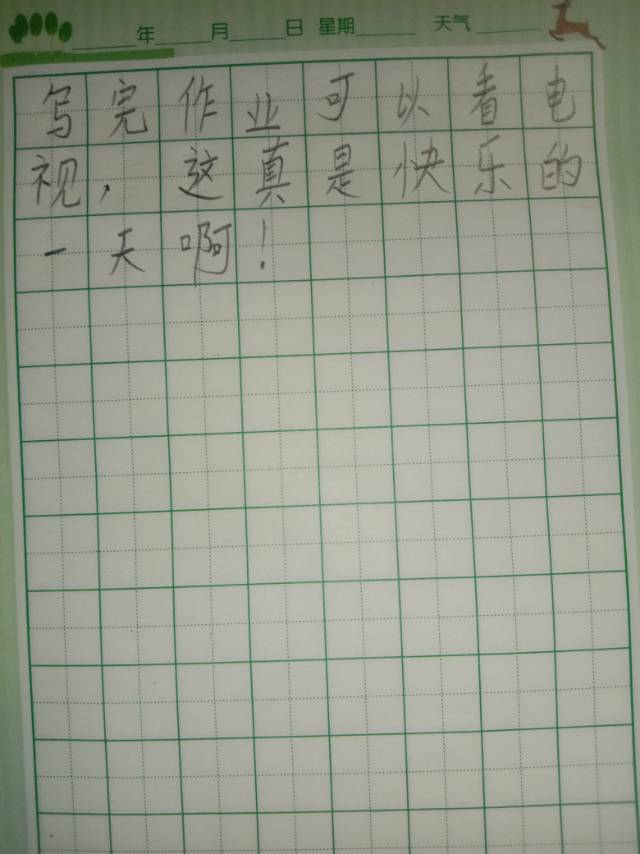 年 月 日 星期 天气
写完作业可以看电
视，这真是快乐的
一天啊！